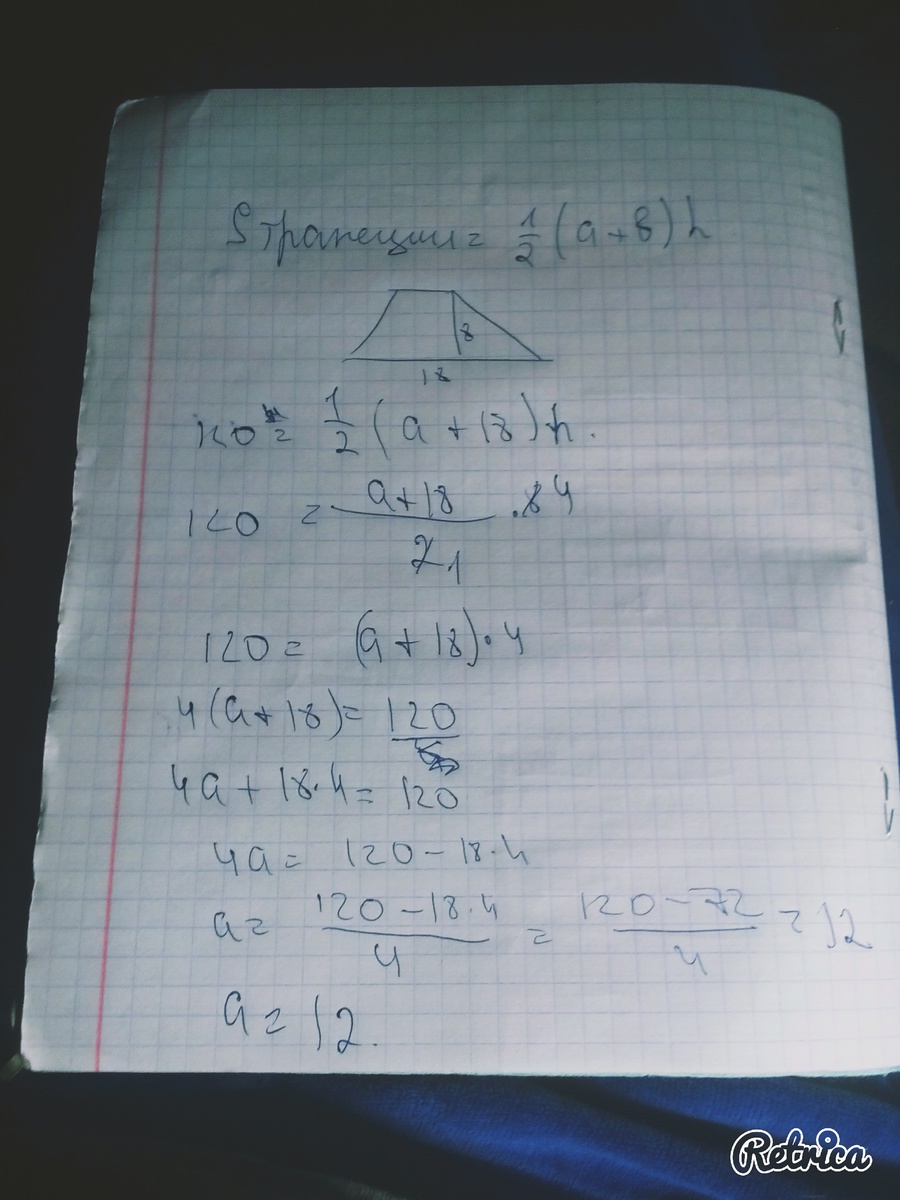 S трапеции = 1/2 (a + в) h
8
18
120 = 1/2 (a + 18) h.
120 = a + 18 / 2 1 · 8 4
120 = (a + 18) · 4
4(a + 18) = 120
4a + 18·4 = 120
4a = 120 - 18·4
a = 120 - 18·4 / 4 = 120 - 72 / 4 = 12
a = 12.
Retrica